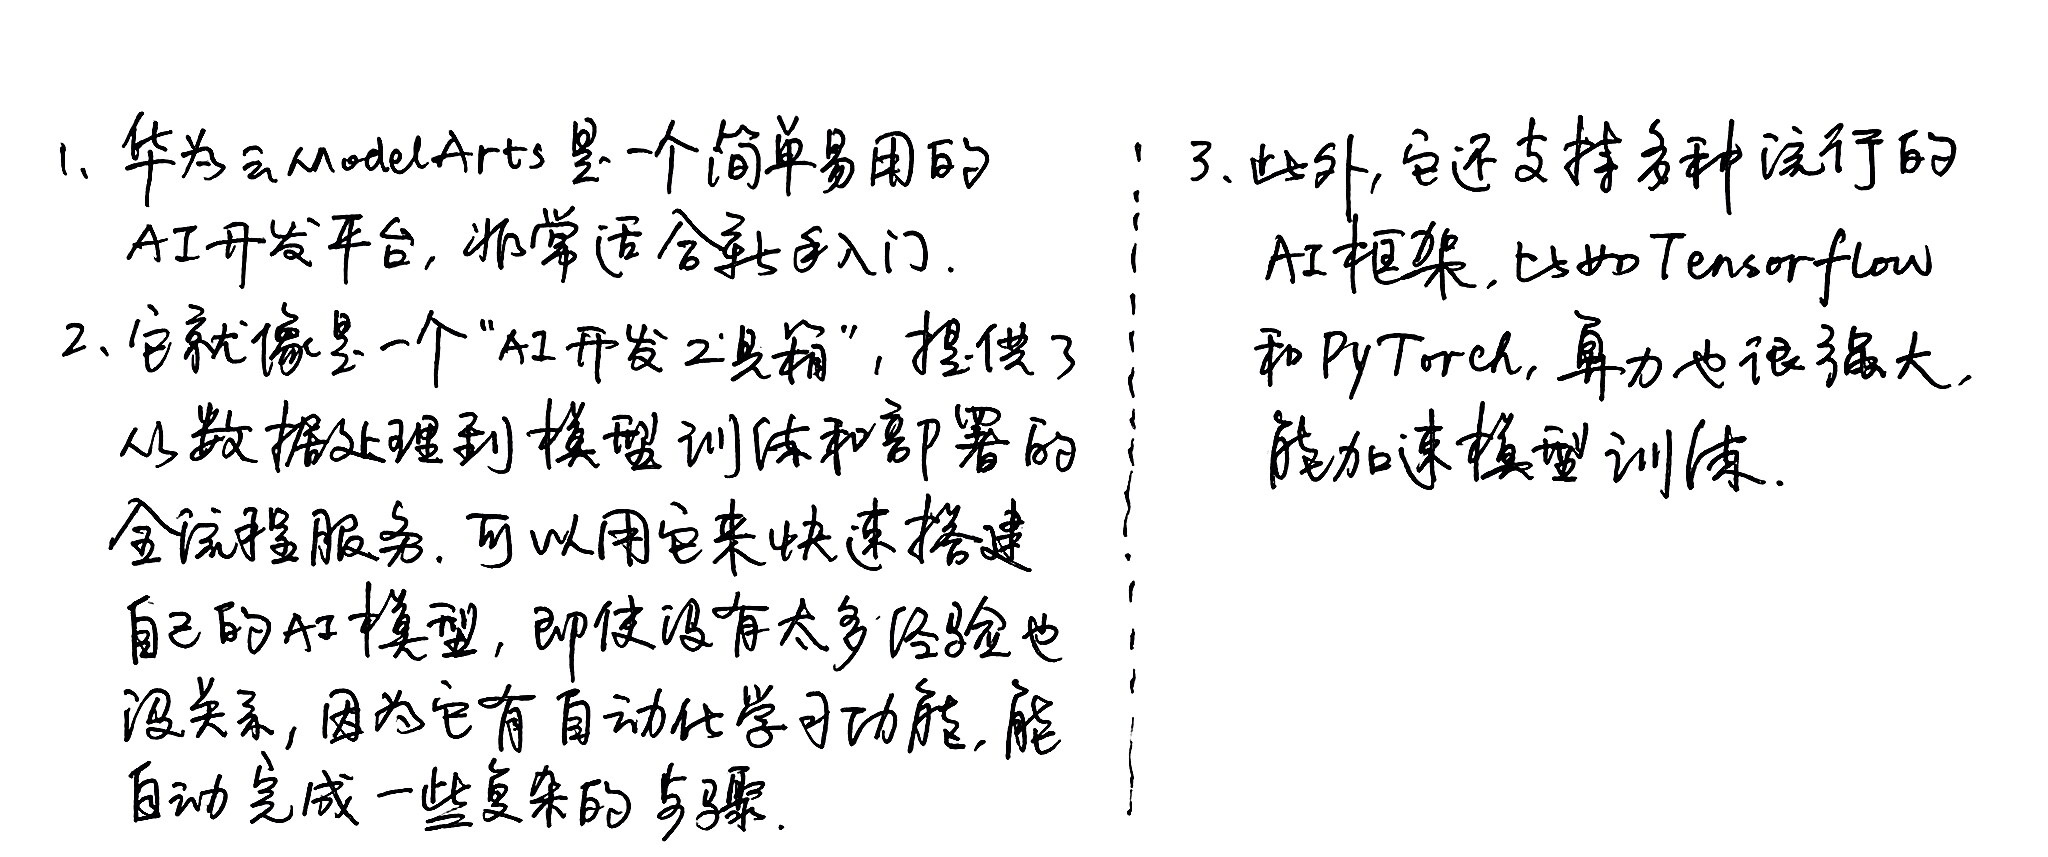 1、华为云ModelArts是一个简单易用的
AI开发平台,非常适合新手入门.
2、它就像是一个“AI开发工具箱”,提供了
从数据处理到模型训练和部署的
全流程服务.可以用它来快速搭建
自己的AI模型,即使没有太多经验也
没关系,因为它有自动化学习功能,能
自动完成一些复杂的步骤.
3、此外,它还支持多种流行的
AI框架,比如Tensorflow
和PyTorch,算力也很强大,
能加速模型训练.